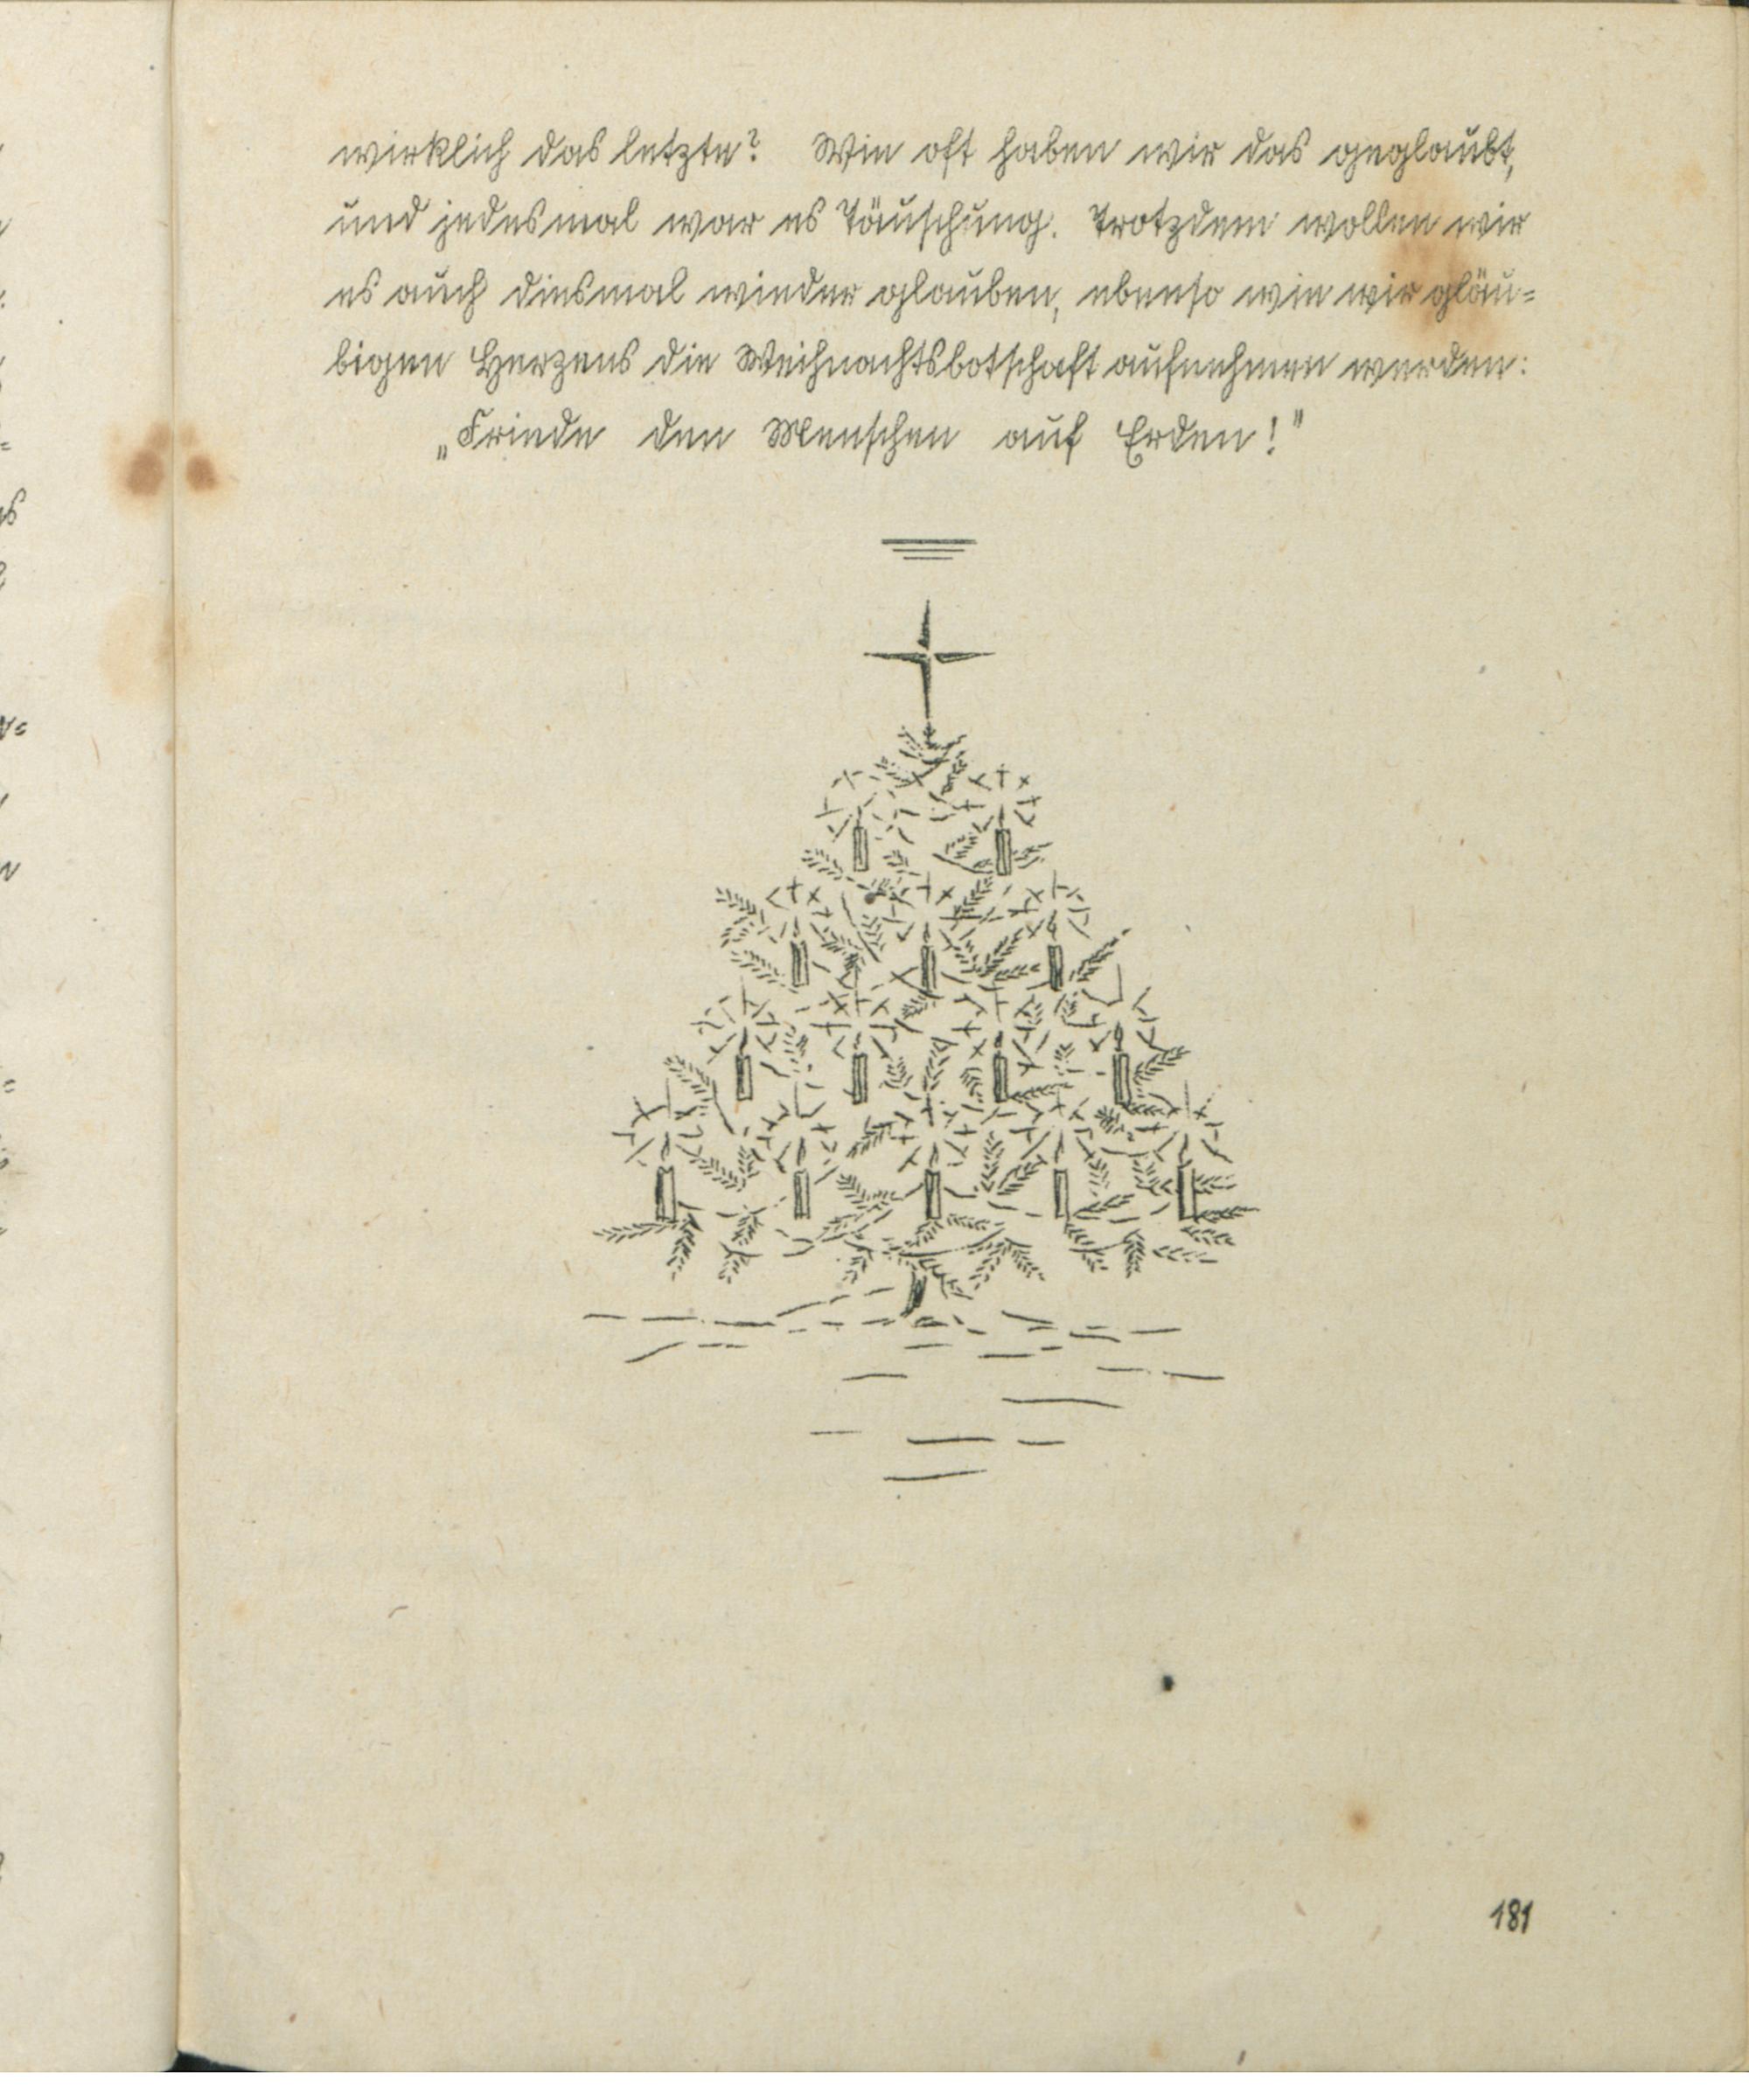 wirklich das letzte? Wie oft haben wir das geglaubt,
und jedesmal war es Täuschung. Trotzdem wollen wir
es auch diesmal wieder glauben, ebenso wie wir gläu=
bigen Herzens die Weihnachtsbotschaft aufnehmen werden:
„Friede den Menschen auf Erden!"
181